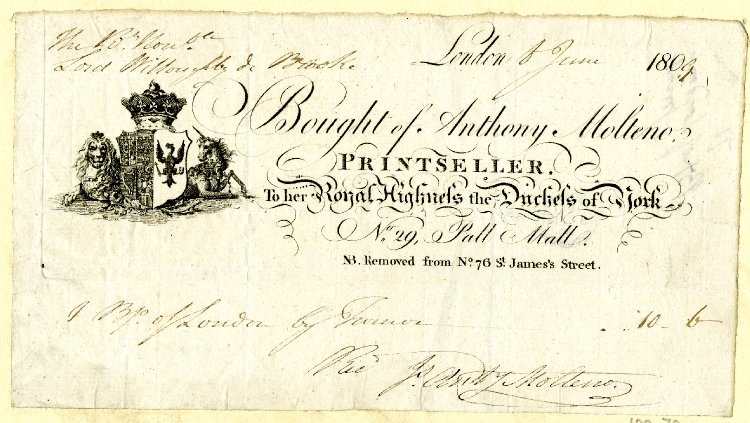 The Rt Honble
Lord Willoughby de Brooke
London 8 June 1809
Bought of Anthony Molteno,
PRINTSELLER.
To her Royal Highneſs the Ducheſs of York
No. 29, Pall Mall.
NB. Removed from No. 76 St. James's Street.
1 Bp. of London by Turner 10 - 6
Recd Anty Molteno